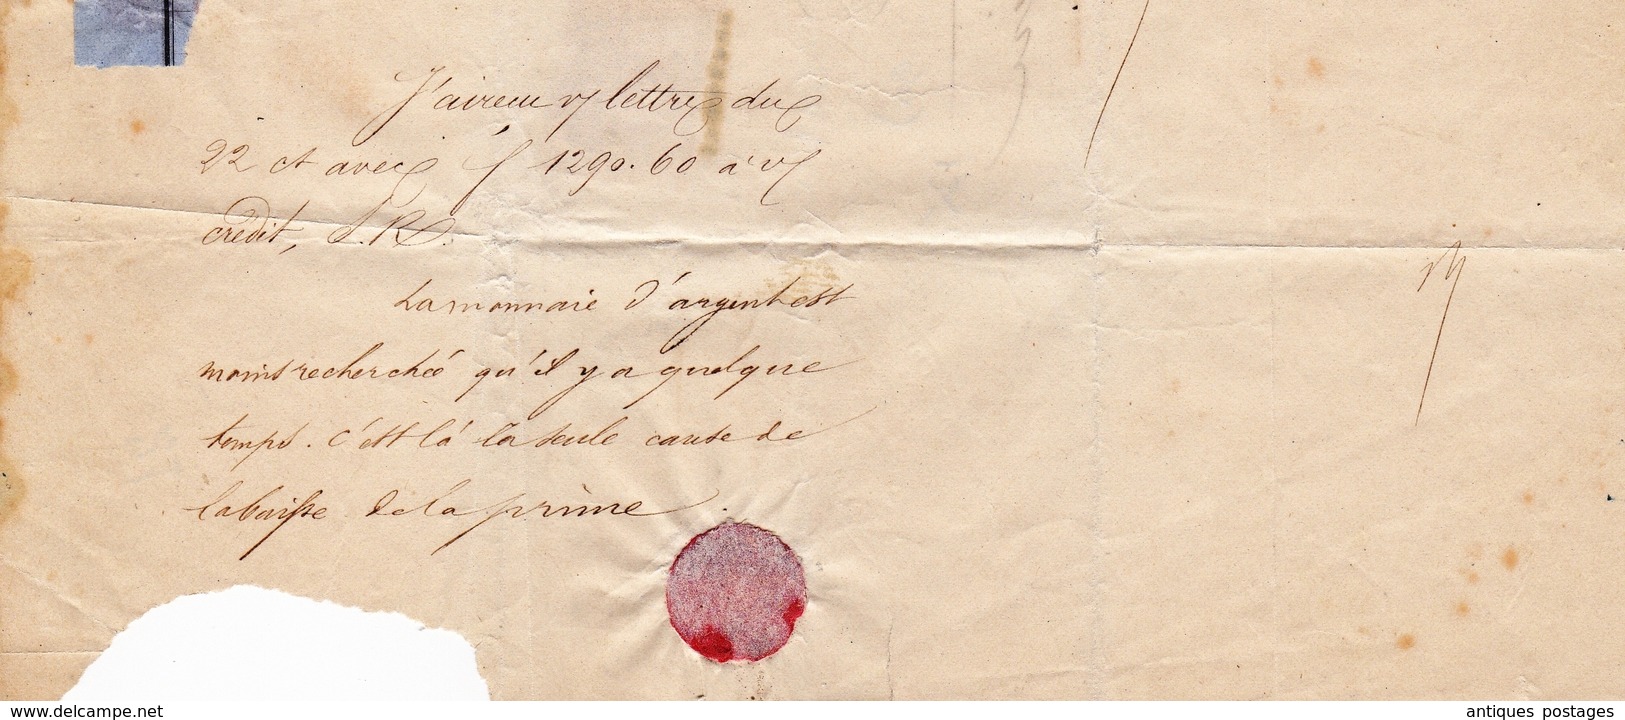 J'ai recu v/ lettre du
22 ct avec f 1290.60 à v/
crédit, S.R.
La monnaie d'argent est
moins recherchée qu'il y a quelque
temps. c'est là la seule cause de
la baisse de la prime
www.delcampe.net
antiques postages